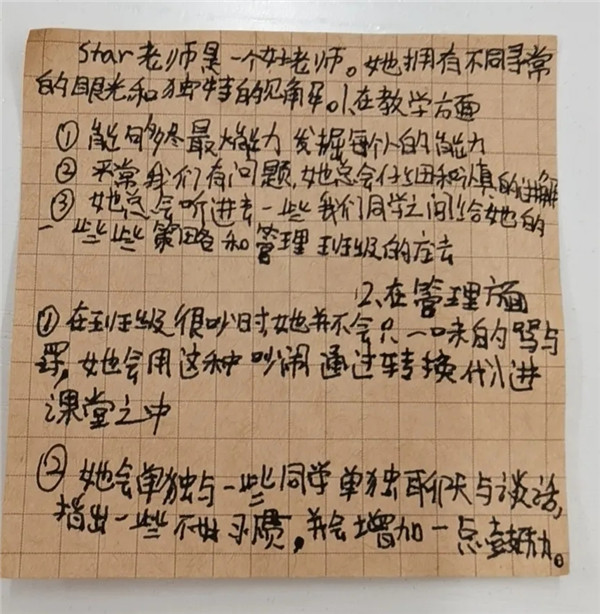 Star老师是一个好老师。她拥有不同寻常
的眼光和独特的视角。1、在教学方面
① 能够尽最大能力发掘每个人的能力
② 平常我们有问题,她总会仔细和认真的讲解
③ 她总会听进去一些我们同学之间给她的
一些些策略和管理班级的方法
2、在管理方面
① 在班级很吵时,她并不会只一味的骂与
罚,她会用这种吵闹通过转换代入进
课堂之中
② 她会单独与一些同学单独聊天与谈话,
指出一些不好习惯,并会增加一点鼓励。